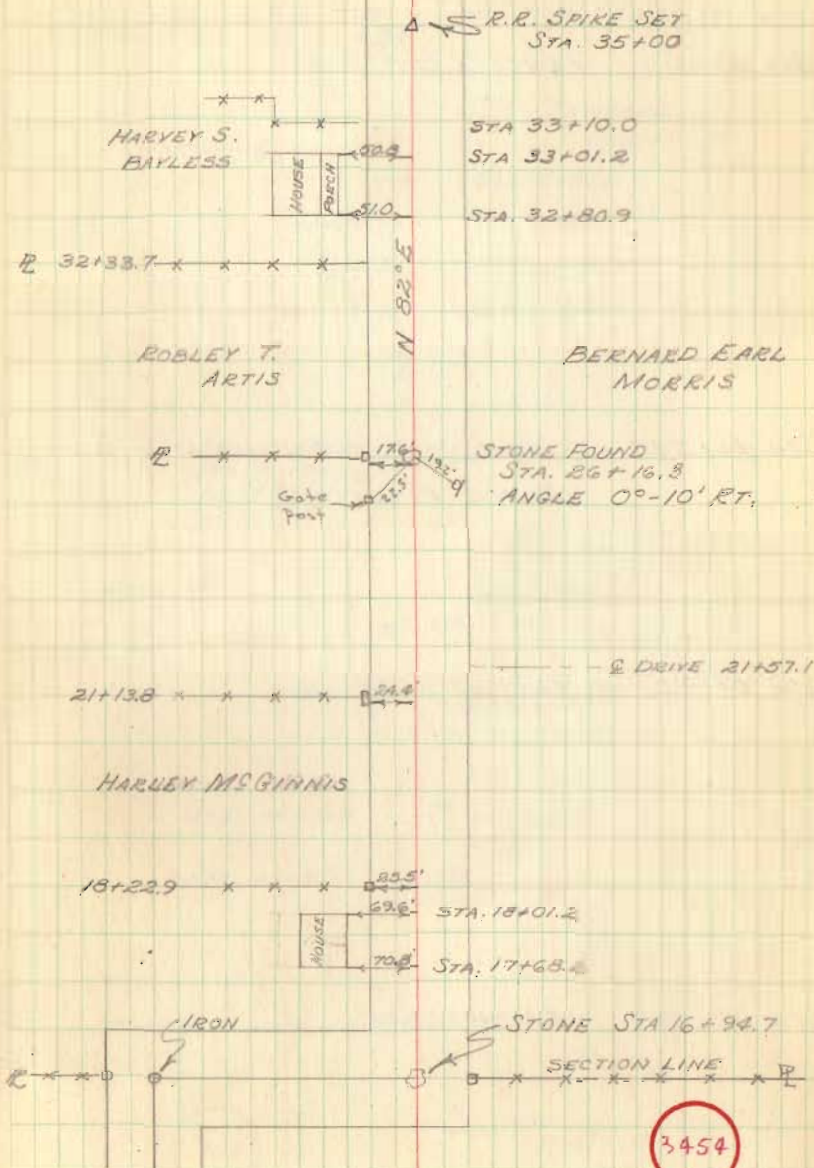 R.R. SPIKE SET
STA. 35+00
STA 33+10.0
HARVEY S.
BAYLESS
HOUSE
PORCH
STA 33+01.2
51.0
STA. 32+80.9
PL 32+33.7
N 82° E
ROBLEY T.
ARTIS
BERNARD EARL
MORRIS
PL
17.6'
19.2'
22.5'
STONE FOUND
STA. 26+16.3
ANGLE 0°-10' RT.
Gate
Post
℄ DRIVE 21+57.1
21+13.8
24.4'
HARVEY McGINNIS
18+22.9
25.5'
69.6'
STA. 18+01.2
HOUSE
70.8'
STA. 17+68.
IRON
STONE STA 16+94.7
SECTION LINE
PL
PL
3454